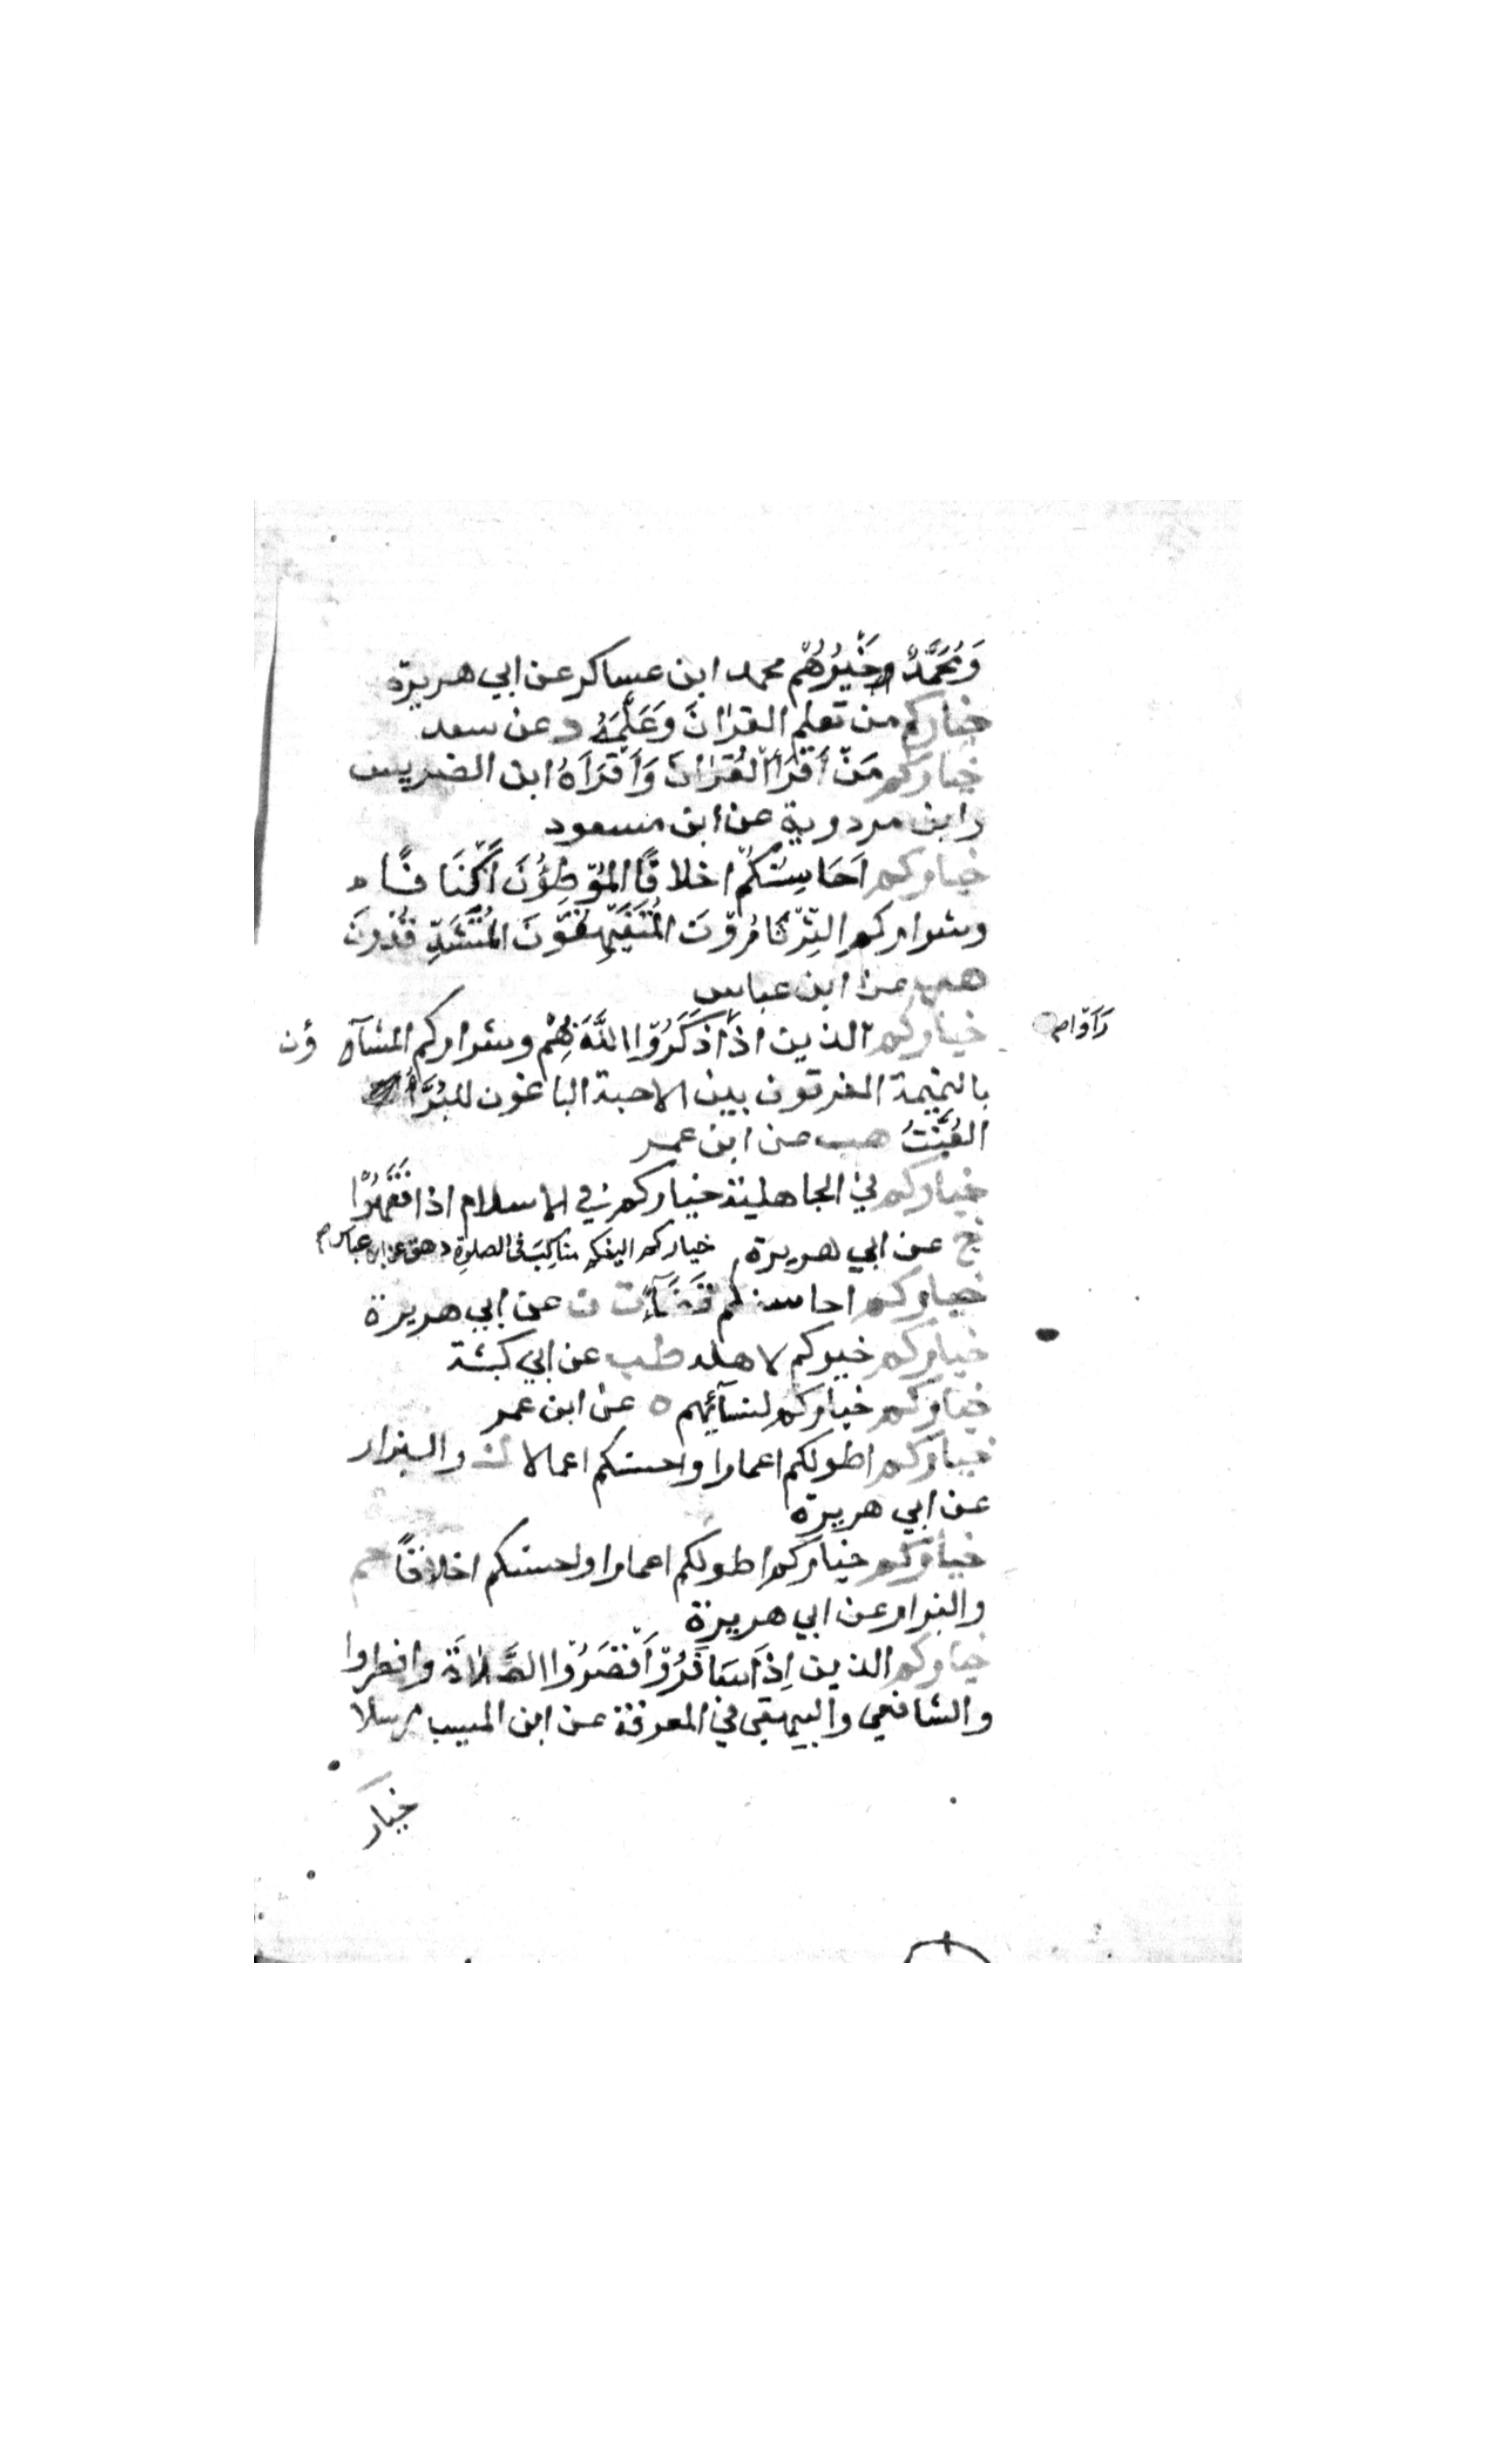 وَمُحَمَّدٌ وخَيْرُهُم محمد ابن عساكر عن ابي هريرة
خياركم من تعلم القرانَ وَعَلَّمَهُ د عن سعد
خياركم مَنْ اَقْرَأ القُرْانَ وَاَقْرَاَهُ ابن الضريس
وابن مردوية عن ابن مسعود
خياركم اَحَاسِنُكُم اخلاقًا المُوَطِؤُنَ اَكْنَافًا
وشراركم الثِّرْثَارُوْنَ المُتَفَيْهِقُوْنَ المُتَشَدِّقُوْنَ
هب عن ابن عباس
رَاَوْا
خياركم الذين اذا ذَكَرُوْا اللَّهَ بِهِمْ وشراركم المشآؤن
بالنميمة المفرقون بين الاحبة الباغون للبُرَّآء
العَنَتُ هب عن ابن عمر
خياركم في الجاهلية خياركم في الاسلام اذا فَقُهُوْا
خ عن ابي هريرة خياركم الينكم مناكب في الصلوة د هق عن ابن عباس
خياركم احاسنكم قَضَآءً ت ن عن ابي هريرة
خياركم خيركم لاهله طب عن ابي كبشة
خياركم خياركم لنسآئهم ه عن ابن عمر
خياركم اطولكم اعمارا واحسنكم اعمالا ك والبزار
عن ابي هريرة
خياركم خياركم اطولكم اعمارا واحسنكم اخلاقًا حم
والبزار عن ابي هريرة
خياركم الذين اِذَا سَافَرُوْا قَصَرُوْا الصَّلاةَ وافطروا
والشافعي والبيهقي في المعرفة عن ابن المسيب مرسلا
خيار